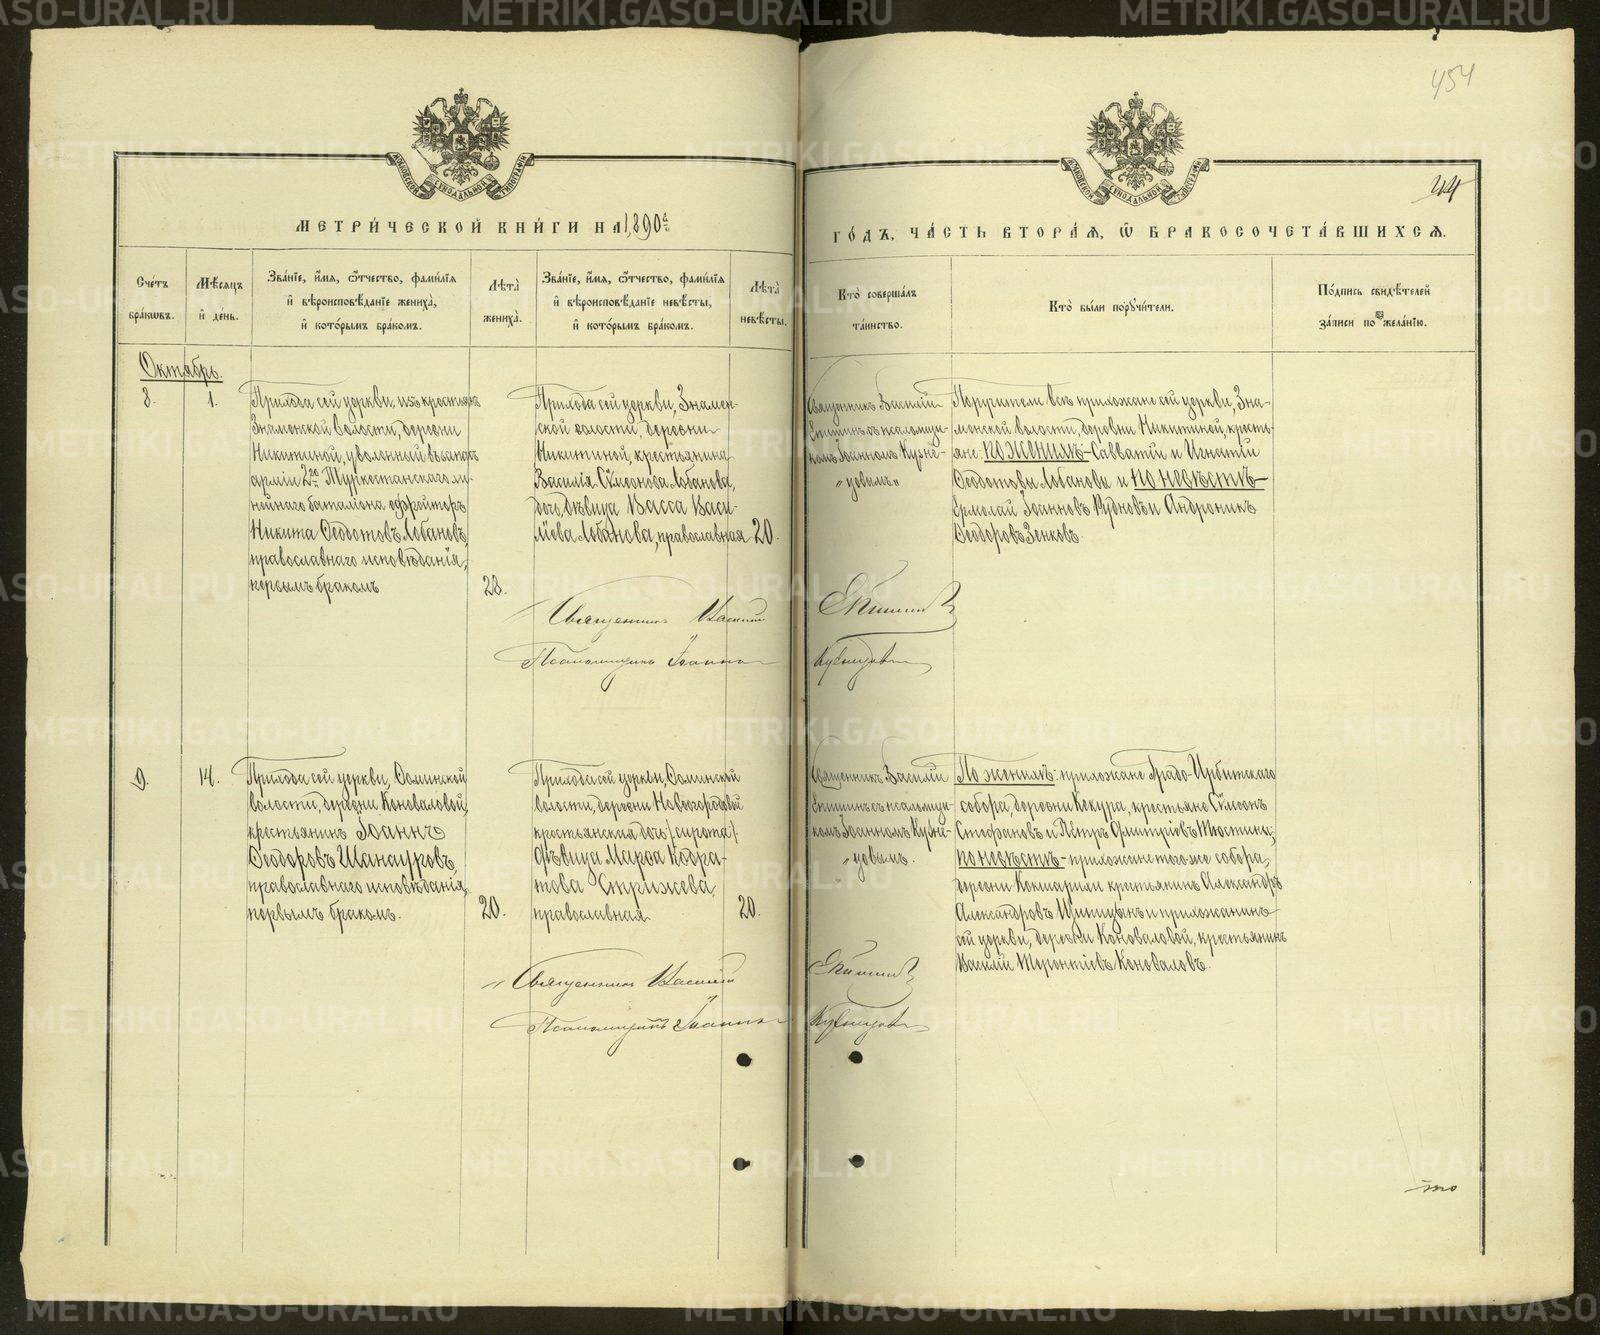 454
44
МЕТРИ́ЧЕСКОЙ КНИ́ГИ НА 1890й
ГО́ДЪ, ЧА́СТЬ ВТОРА́Я, Ѡ БРАКОСОЧЕТА́ВШИХСЯ.
Сче́тъ бра́кѡвъ.
Мѣ́сяцъ и҆ день.
Зва́нїе, и҆́мя, ѻ҆́тчество, фами́лїя и҆ вѣроисповѣ́данїе жениха̀, и҆ кото́рымъ бра́комъ.
Лѣта̀ жениха̀.
Зва́нїе, и҆́мя, ѻ҆́тчество, фами́лїя и҆ вѣроисповѣ́данїе невѣ́сты, и҆ кото́рымъ бра́комъ.
Лѣта̀ невѣ́сты.
Кто̀ соверша́лъ та́инство.
Кто̀ бы́ли поручи́тели.
По́дпись свидѣ́телей за́писи по жела́нїю.
Октябрь.
8.
1.
Прихода сей церкви, изъ крестьянъ
Знаменской волости, деревни
Никитиной, уволенный въ запасъ
армiи 2го Туркестанскаго ли-
нейнаго баталiона ефрейторъ
Никита Ѳеодотовъ Лобановъ,
православнаго исповѣданiя,
первымъ бракомъ
28.
Прихода сей церкви, Знамен-
ской волости, деревни
Никитиной, крестьянина
Василiя Сѵмеонова Лобанова,
дочь, дѣвица Васса Васи-
лiева Лобанова, православная
20.
Священникъ Василiй
Епишинъ съ псаломщи-
комъ Iоанномъ Кузне-
„цовымъ„
Поручители всѣ прихожане сей церкви, Зна-
менской волости, деревни Никитиной, кресть-
яне по женихѣ – Савватiй и Игнатiй
Ѳеодотовы Лобановы и по невѣстѣ –
Ермолай Iоанновъ Рудновъ и Андроникъ
Ѳеодоровъ Зенковъ.
Священникъ Василiй Епишинъ
Псаломщикъ Iоаннъ Кузнецовъ
9.
14.
Прихода сей церкви,
волости, деревни Коноваловой,
крестьянинъ Iоаннъ
Ѳеодоровъ Шанауровъ,
православнаго исповѣданiя,
первымъ бракомъ.
20.
Прихода сей церкви,
волости, деревни
крестьянская дочь (сирота)
дѣвица Марѳа Кодра-
това Стрижева,
православная
20.
Священникъ Василiй
Епишинъ съ псаломщи-
комъ Iоанномъ Кузне-
„цовымъ.
По женихѣ: прихожане Градо-Ирбитскаго
собора, деревни Кекура, крестьяне Сѵмеонъ
Стефановъ и Петръ Димитрiевъ
по невѣстѣ – прихожане того же собора,
деревни Кокшарихи крестьянинъ Александръ
Александровъ и прихожанинъ
сей церкви, деревни Коноваловой, крестьянинъ
Василiй Терентiевъ Коноваловъ.
Священникъ Василiй Епишинъ
Псаломщикъ Iоаннъ Кузнецовъ
METRIKI.GASO-URAL.RU